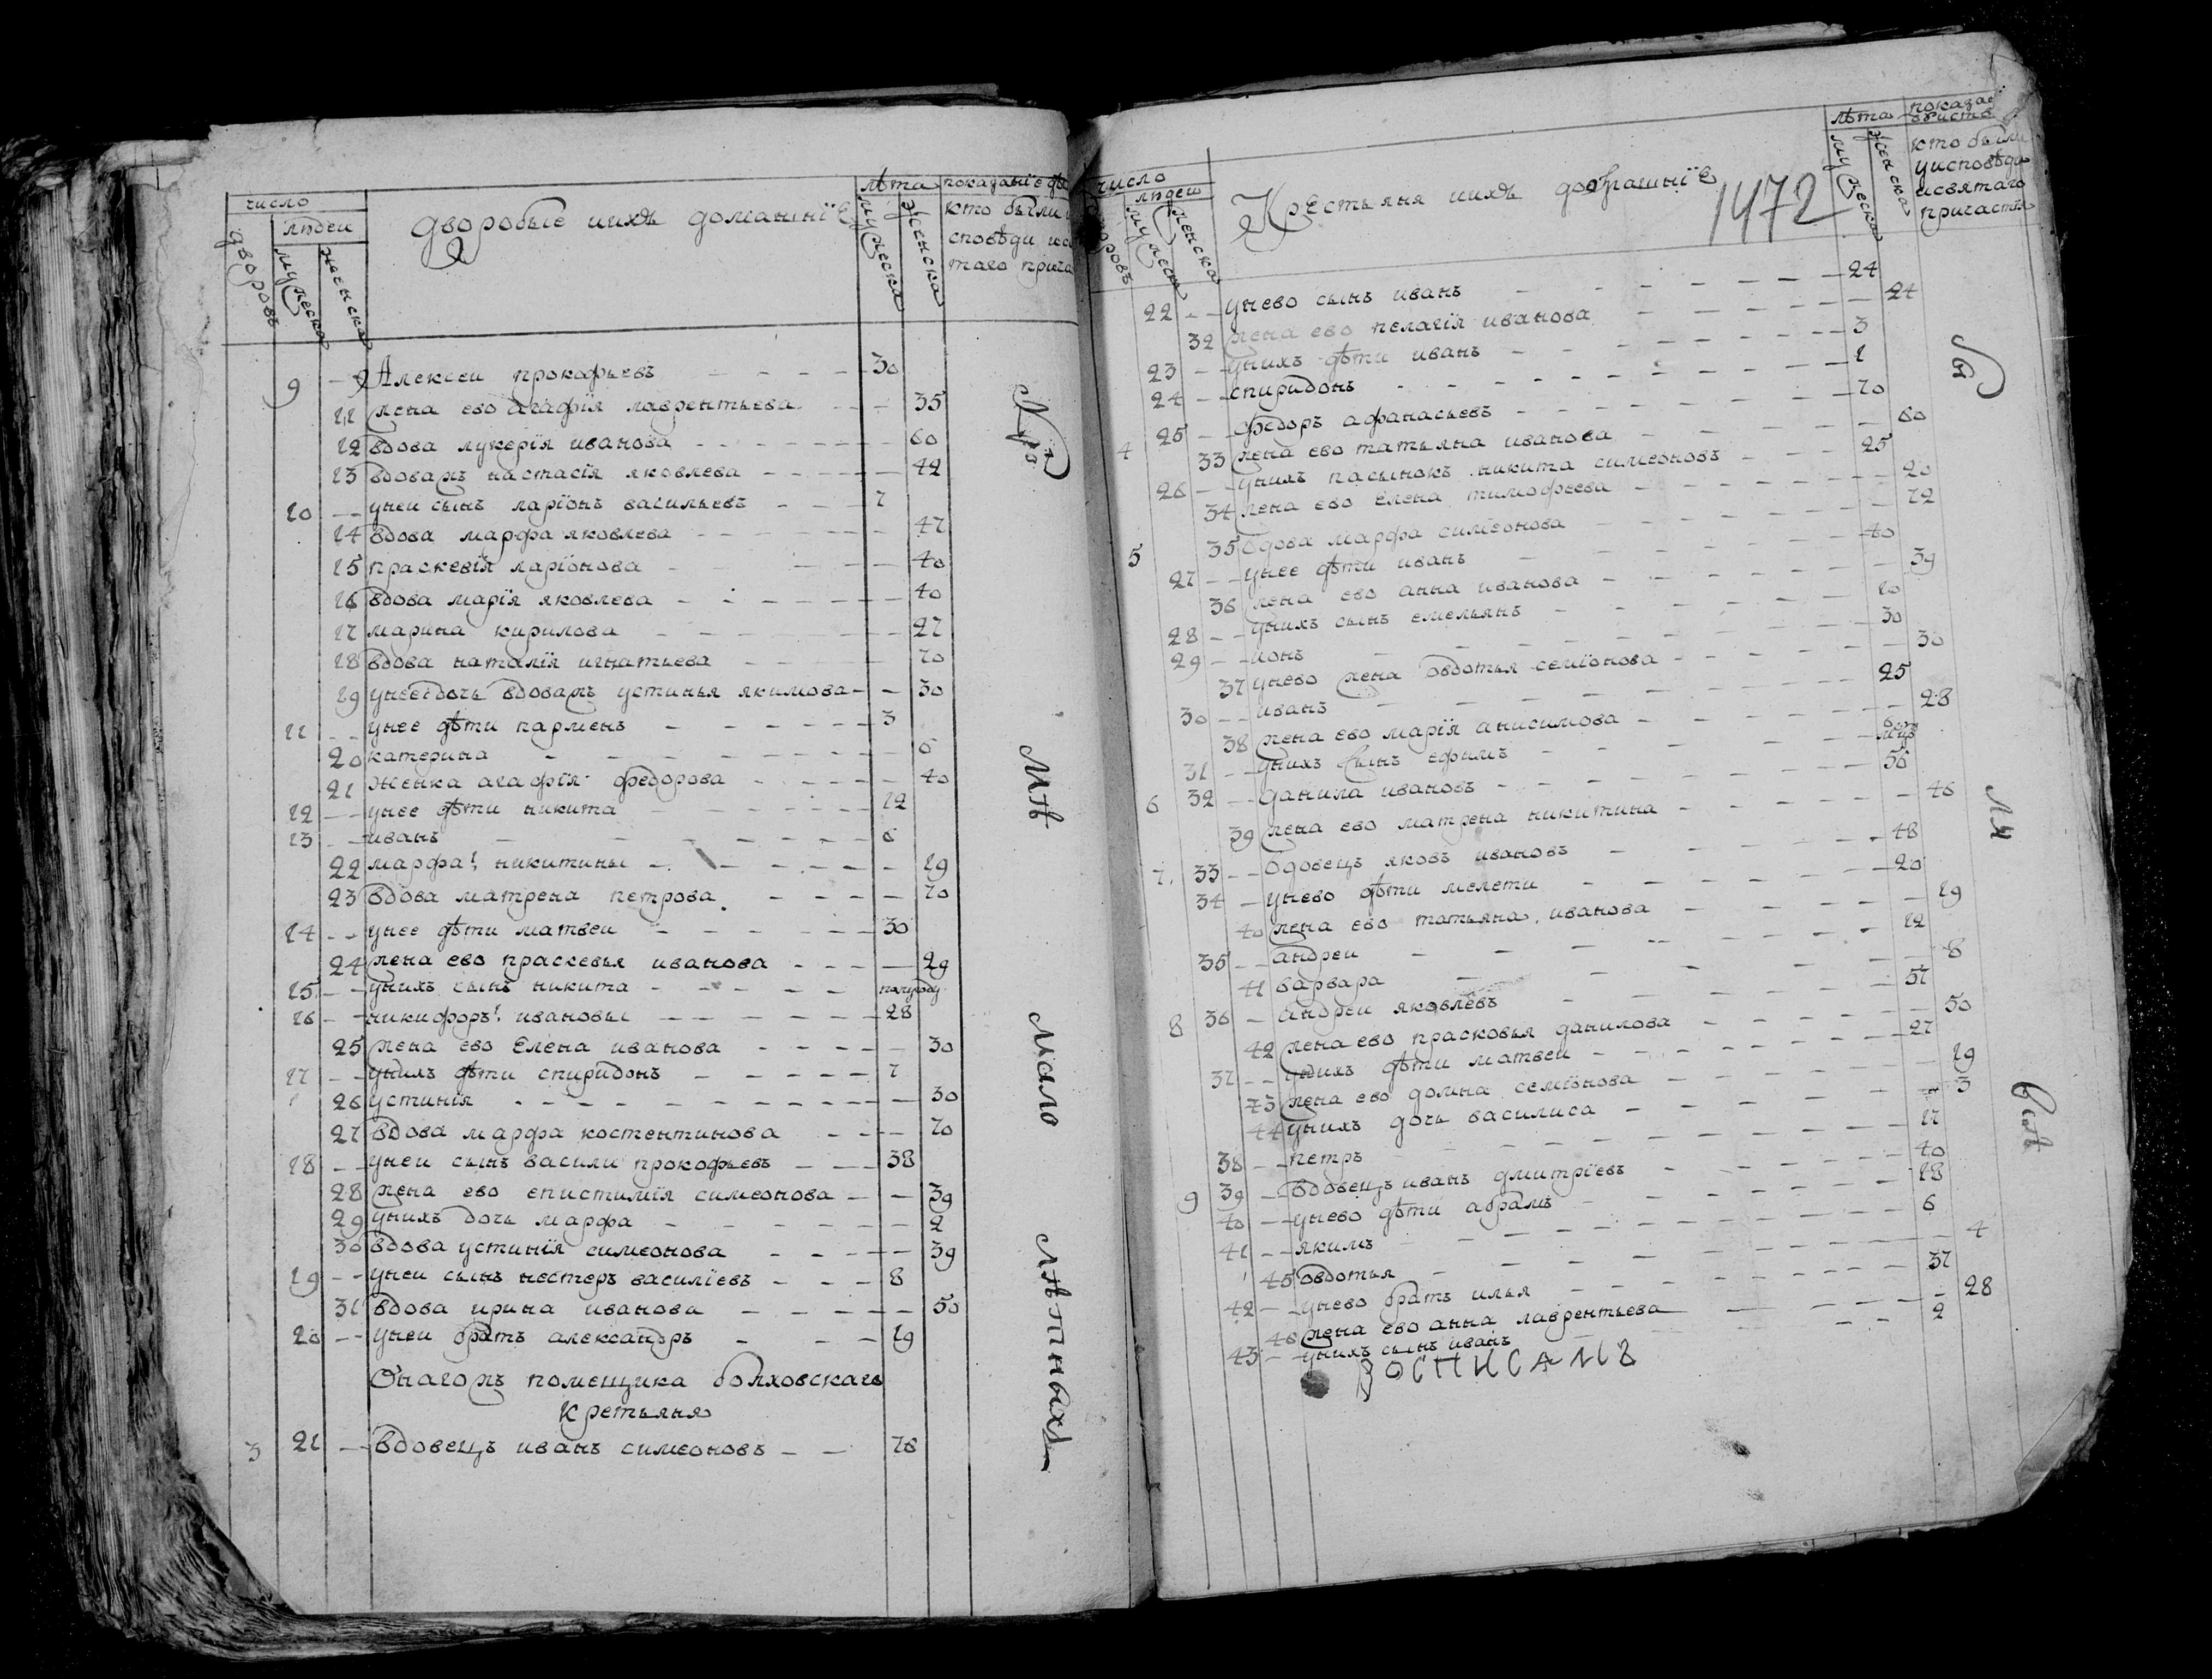 число
людеи
дворовъ
мужеска
женска
дворовые иихъ домашнїе
лѣта
мужеска
женска
показанїе
кто были
сповѣди
таго прича
9 Алексеи прокофьевъ 30
11 жена ево агафїя лаврентьева 35
12 вдова лукерїя иванова 60
13 вдоважъ настасїя яковлева 42
10 унеи сынъ ларїонъ васильевъ 7
14 вдова марфа яковлева 47
15 праскевїя ларїонова 40
16 вдова марїя яковлева 40
17 марина кирилова 27
18 вдова наталїя игнатьева 70
19 унее дочь вдоважъ устинья якимова 30
11 унее дѣти парменъ 3
20 катерина 6
21 женка агафїя федорова 40
12 унее дѣти никита 12
13 иванъ 6
22 марфа никитины 19
23 вдова матрена петрова 70
14 унее дѣти матвеи 30
24 жена ево праскевья иванова 29
15 унихъ сынъ никита полугоду
16 никифоръ ивановы 28
25 жена ево Елена иванова 30
17 унихъ дѣти спиридонъ 7
26 устинїя 30
27 вдова марфа костентинова 70
18 унеи сынъ васили прокофьевъ 38
28 жена ево епистимїя симеонова 39
29 унихъ дочь марфа 2
30 вдова устинїя симеонова 39
19 унеи сынъ нестеръ василїевъ 8
31 вдова ирина иванова 50
20 унеи братъ александръ 19
Онагожъ помещика болховскаго
кретьяня
3 21 вдовецъ иванъ симеоновъ 76
мало
лѣтныхъ
число
людеи
мужеска
женска
Крестьяня иихъ домашнїе
1472
лѣта
мужеска
женска
кто были
уисповѣди
исвятаго
причастїя
22 унево сынъ иванъ 24
32 жена ево пелагїя иванова 24
23 унихъ дѣти иванъ 3
24 спиридонъ 1
4 25 федоръ афанасьевъ 70
33 жена ево татьяна иванова 60
26 унихъ пасынокъ никита симеоновъ 25
34 жена ево Елена тимофеева 20
5 35 вдова марфа симеонова 72
27 унее дѣти иванъ 40
36 жена ево анна иванова 39
28 унихъ сынъ емельянъ 10
29 ионъ 30
37 унево жена овдотья семїонова 30
30 иванъ 25
38 жена ево марїя анисимова 28
31 унихъ сынъ ефимъ
6 32 данила ивановъ 56
39 жена ево матрена никитина 46
7 33 вдовецъ яковъ ивановъ 48
34 унево дѣти мелети 20
40 жена ево татьяна иванова 19
35 андреи 12
41 варвара 8
8 36 андреи яковлевъ 57
42 жена ево прасковья данилова 50
37 унихъ дѣти матвеи 27
43 жена ево домна семїонова 19
44 унихъ дочь василиса 3
38 петръ 17
9 39 вдовецъ иванъ дмитрїевъ 40
40 унево дѣти абрамъ 18
41 якимъ 6
45 овдотья 4
42 унево братъ илья 37
46 жена ево анна лаврентьева 28
43 унихъ сынъ иванъ 2